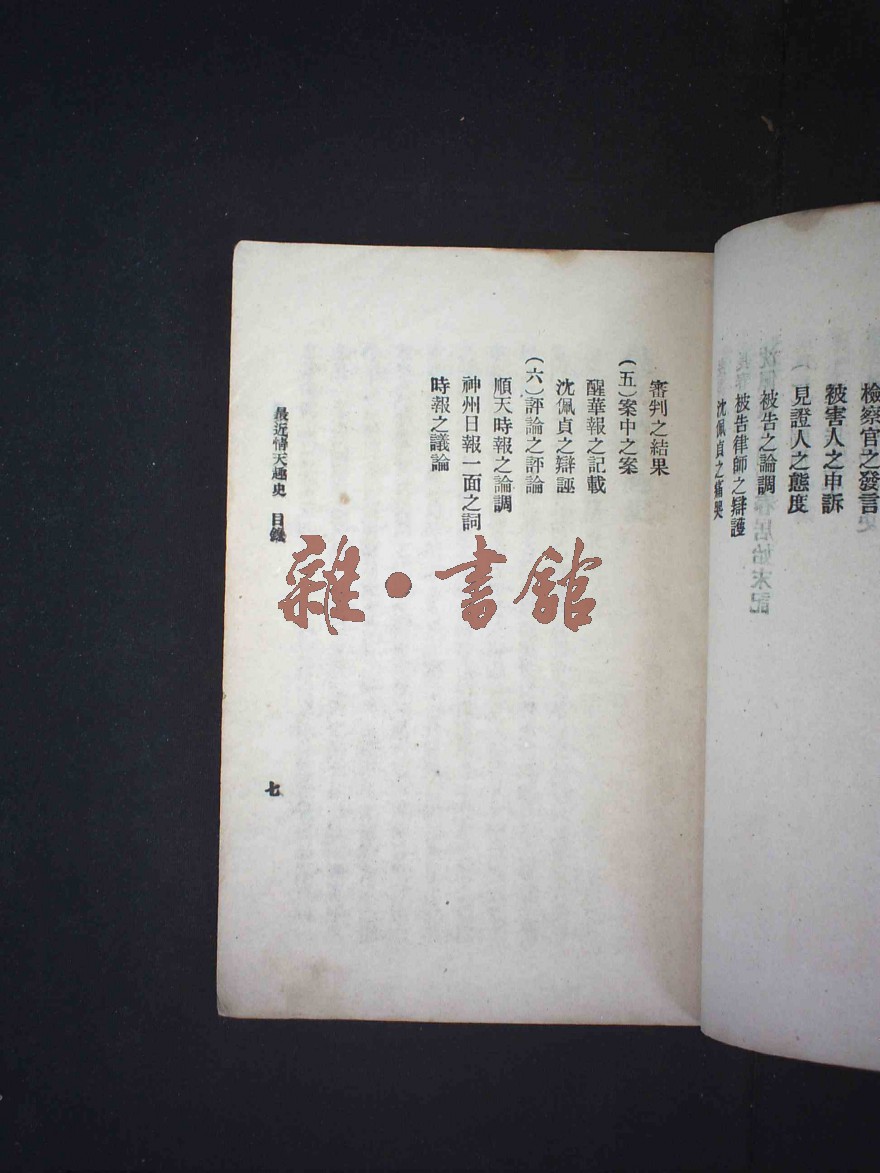 檢察官之發言
被害人之申訴
見證人之態度
被告之論調
被告律師之辯護
沈佩貞之痛哭
審判之結果
（五）案中之案
醒華報之記載
沈佩貞之辯誣
（六）評論之評論
順天時報之論調
神州日報一面之詞
時報之議論
最近情天趣史 目錄
七
雜·書館